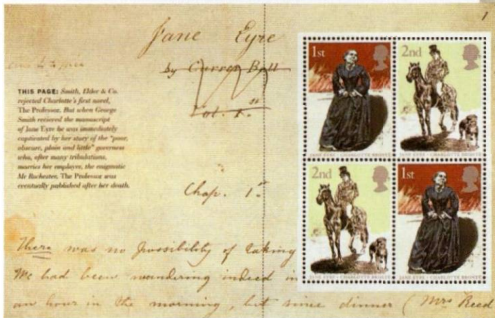 1
Jane Eyre
by Currer Bell
Vol. I.
THIS PAGE: Smith, Elder & Co.
rejected Charlotte's first novel,
The Professor. But when George
Smith received the manuscript
of Jane Eyre he was immediately
captivated by her story of the "poor,
obscure, plain and little" governess
who, after many tribulations,
marries her employer, the enigmatic
Mr Rochester. The Professor was
eventually published after her death.
Chap. 1.
There was no possibility of taking
We had been wandering indeed in
an hour in the morning, but since dinner (Mrs Reed
1st
2nd
2nd
1st
JANE EYRE CHARLOTTE BRONTË
JANE EYRE CHARLOTTE BRONTË